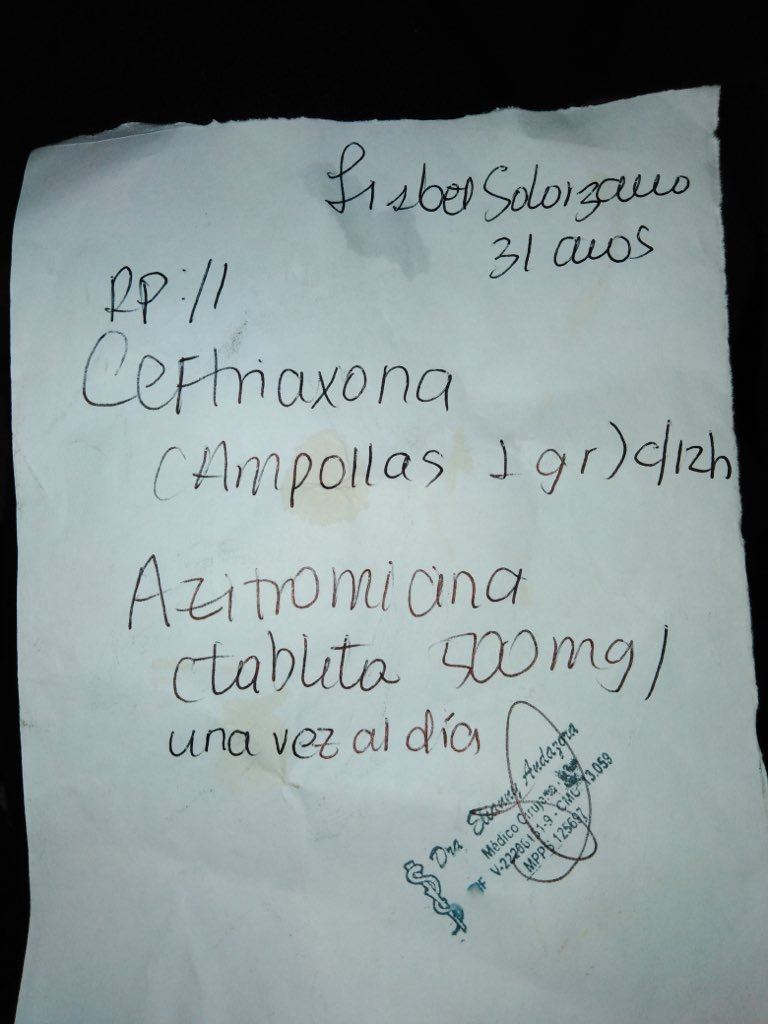 Lisbel Solorzano
31 anos
RP://
Ceftriaxona
(Ampollas 1 gr) c/12h
Azitromicina
(tableta 500mg)
una vez al día
Dra Andazora
Médico Cirujano
MPPS 125697